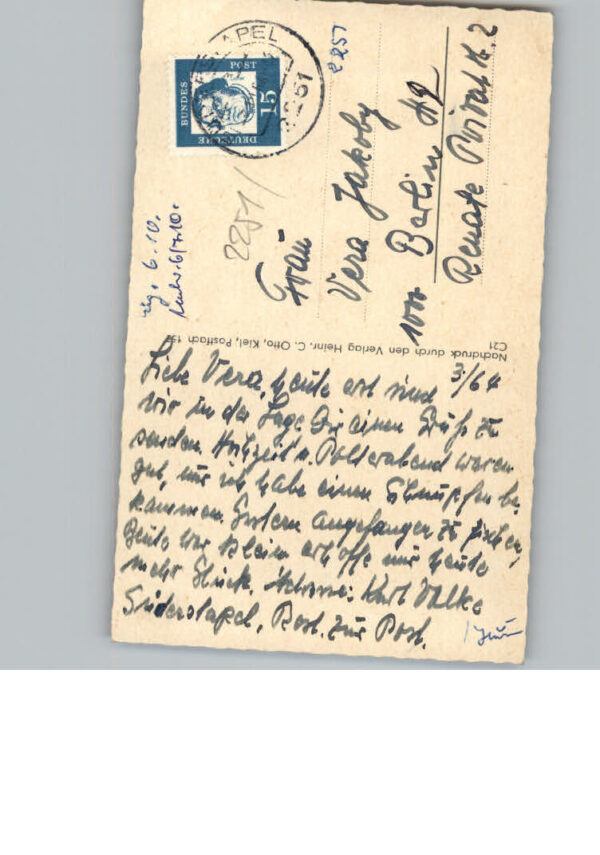 APEL
2251
DEUTSCHE
BUNDES
POST
15
2251
2251
Frau
Vera Jakoby
1000 Berlin 42
Renate Privat Str. 2
6.10.
6/7.10.
Nachdruck durch den Verlag Heinr. C. Otto, Kiel, Postfach
C21
3/64
Liebe Vera, heute erst sind
wir in der Lage Dir einen Gruß zu
senden. Hochzeit u. Polterabend waren
gut, nur ich habe einen Schnupfen be-
kommen. Gestern angefangen zu fischen,
Beute war klein erhoffe mir heute
mehr Glück. Adresse: Kurt
Süderstapel, Rest. zur Post.